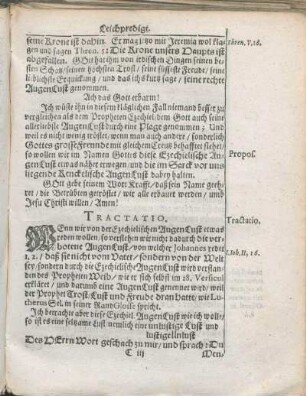 Leichpredigt.
seine Krone ist dahin. Er mag jo mit Jeremia wol klagen
und sagen Thren. 5: Die Krone unsers Haupts ist
abgefallen. GOtt hat ihm von irdischen Dingen seinen besten
Schatz/ seinen höchsten Trost/ seine süsseste Freude/ seine
liebligste Erquickung/ und das ichs kurtz sage/ seine rechte
AugenLust genommen.
Ach das Gott erbarm!
Ich wüste ihn in diesem kläglichen Fall niemand besser zu
vergleichen als dem Propheten Ezechiel/ dem Gott auch seine
allerliebste AugenLust durch eine Plage genommen; Und
weil es nicht wenig tröstet/ wenn man auch andre/ sonderlich
Gottes grosse Freunde mit gleichem Creutz behafftet siehet/
so wollen wir im Namen Gottes diese Ezechielische AugenLust
etwas näher erwegen/ und die im Sarck vor uns
liegende Kenckelische AugenLust dabey halten.
GOtt gebe seinem Wort Krafft/ daß sein Name geehret/
die Betrübten getröstet/ wir alle erbauet werden/ umb
Jesu Christi willen/ Amen!
TRACTATIO.
WEnn wir von der Ezechielischen AugenLust etwas
reden wollen/ so verstehen wir nicht dadurch die verbotene
AugenLust/ von welcher Johannes redet
1, 2/ daß sie nicht vom Vater/ sondern von der Welt
sey/ sondern durch die Ezechielische AugenLust wird verstanden
des Propheten Weib/ wie er sich selbst im 18. Versicul
erkläret/ und darumb eine AugenLust genennet wird/ weil
der Prophet Trost/ Lust und Freude dran hatte/ wie Lutherus
Sel. in seiner RandGlosse spricht.
Ich betrachte aber diese Ezechiel. AugenLust wie ich wolle/
so ist es eine seltzame Lust nemlich eine unlustige Lust und
lustige Unlust
Des HErrn Wort geschach zu mir/ und sprach: Du
C iij
Men/
Propos.
Tractatio.